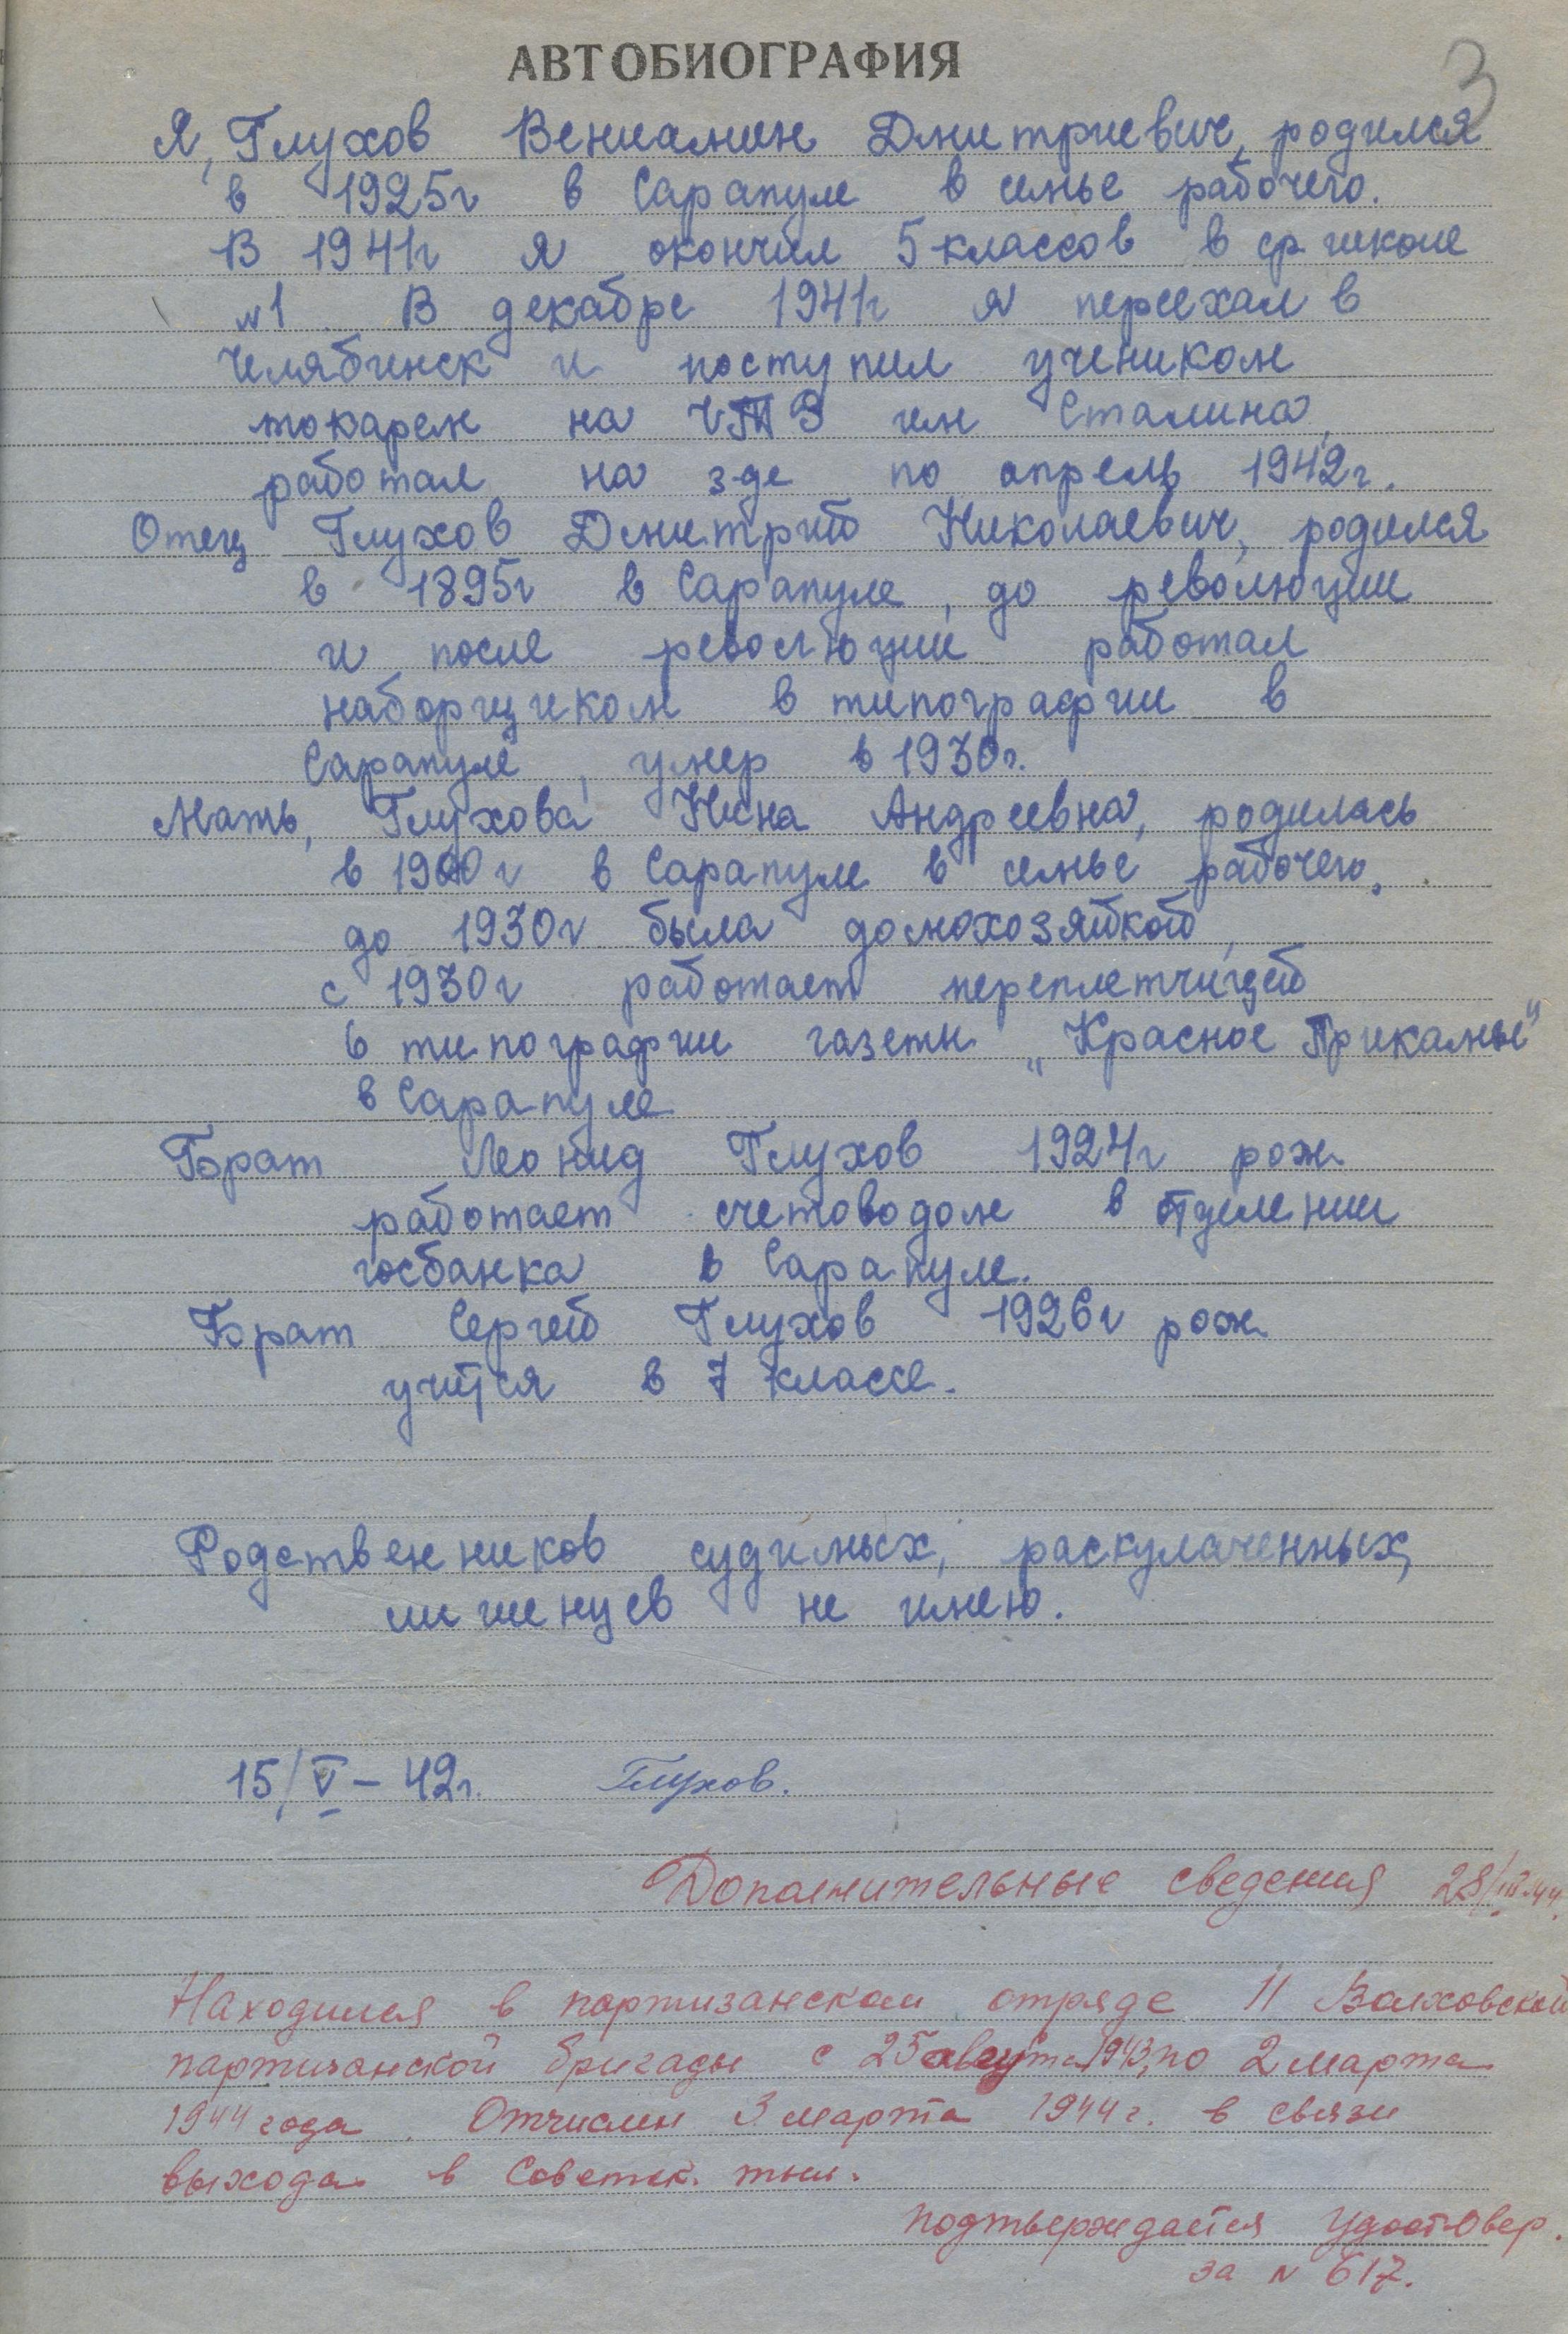 АВТОБИОГРАФИЯ
3
Я, Глухов Вениамин Дмитриевич, родился
в 1925г в Сарапуле в семье рабочего.
В 1941г я окончил 5 классов в ср школе
№1 В декабре 1941г я переехал в
Челябинск и поступил учеником
токарем на ЧТЗ им Сталина,
работал на з-де по апрель 1942г.
Отец Глухов Дмитрий Николаевич, родился
в 1895г в Сарапуле, до революции
и после революции работал
наборщиком в типографии в
Сарапуле, умер в 1930г.
Мать, Глухова Нина Андреевна, родилась
в 1900г в Сарапуле в семье рабочего,
до 1930г была домохозяйкой,
с 1930г работает переплетчицей
в типографии газеты „Красное Прикамье"
в Сарапуле
Брат Леонид Глухов 1924г рож
работает счетоводом в отделении
госбанка в Сарапуле.
Брат Сергей Глухов 1926г рож
учится в 7 классе.
Родственников судимых, раскулаченных,
лишенцев не имею.
15/V – 42г. Глухов.
Дополнительные сведения 28/III-44
Находился в партизанском отряде 11 Волховской
партизанской бригады с 25 августа 1943, по 2 марта
1944 года. Отчислен 3 марта 1944 г. в связи
выхода в Советск. тыл.
подтверждается удостовер.
за N 617.